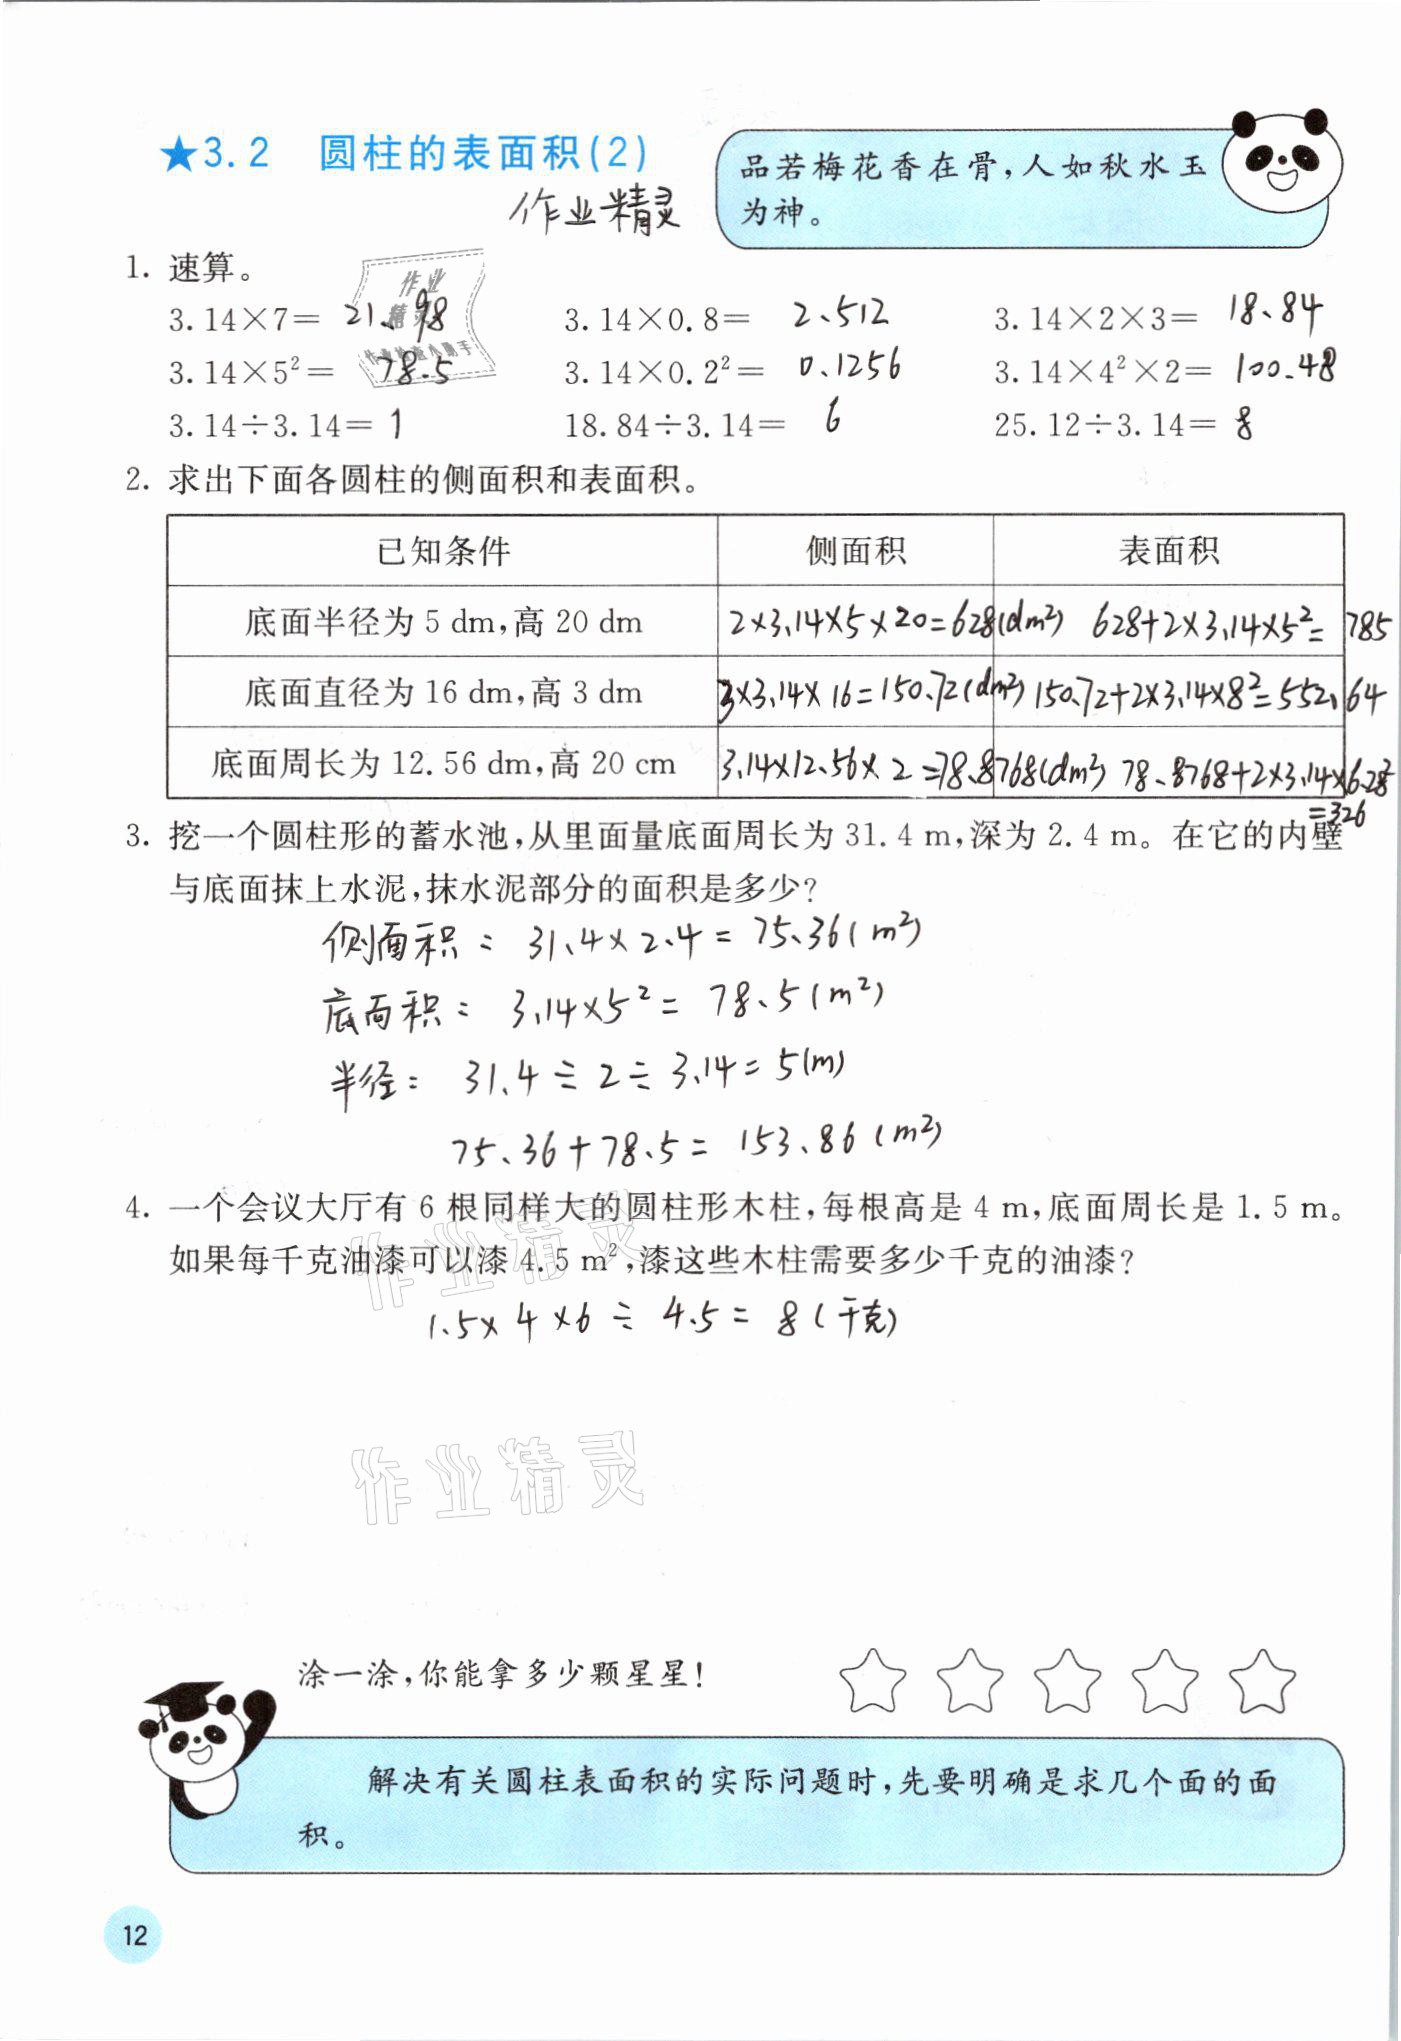 ★3.2 圆柱的表面积(2)
作业精灵
品若梅花香在骨,人如秋水玉
为神。
1. 速算。
作业
精灵
作业检查小助手
3.14×7= 21.98 3.14×0.8= 2.512 3.14×2×3= 18.84
3.14×5²= 78.5 3.14×0.2²= 0.1256 3.14×4²×2= 100.48
3.14÷3.14= 1 18.84÷3.14= 6 25.12÷3.14= 8
2. 求出下面各圆柱的侧面积和表面积。
已知条件 侧面积 表面积
底面半径为 5 dm,高 20 dm 2×3.14×5×20=628(dm²) 628+2×3.14×5²=785
底面直径为 16 dm,高 3 dm 3×3.14×16=150.72(dm²) 150.72+2×3.14×8²=552.64
底面周长为 12.56 dm,高 20 cm 3.14×12.56×2=78.8768(dm²) 78.8768+2×3.14×6.28²
=326
3. 挖一个圆柱形的蓄水池,从里面量底面周长为 31.4 m,深为 2.4 m。在它的内壁
与底面抹上水泥,抹水泥部分的面积是多少?
侧面积: 31.4×2.4=75.36(m²)
底面积: 3.14×5²=78.5(m²)
半径: 31.4÷2÷3.14=5(m)
75.36+78.5=153.86(m²)
4. 一个会议大厅有 6 根同样大的圆柱形木柱,每根高是 4 m,底面周长是 1.5 m。
如果每千克油漆可以漆 4.5 m²,漆这些木柱需要多少千克的油漆?
作业精灵
1.5×4×6÷4.5=8(千克)
作业精灵
涂一涂,你能拿多少颗星星!
解决有关圆柱表面积的实际问题时,先要明确是求几个面的面
积。
12